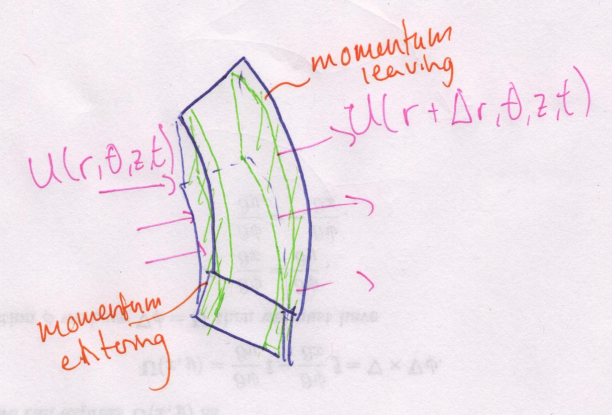 momentum
leaving
U(r,θ,z,t)
U(r+Δr,θ,z,t)
momentum
entering